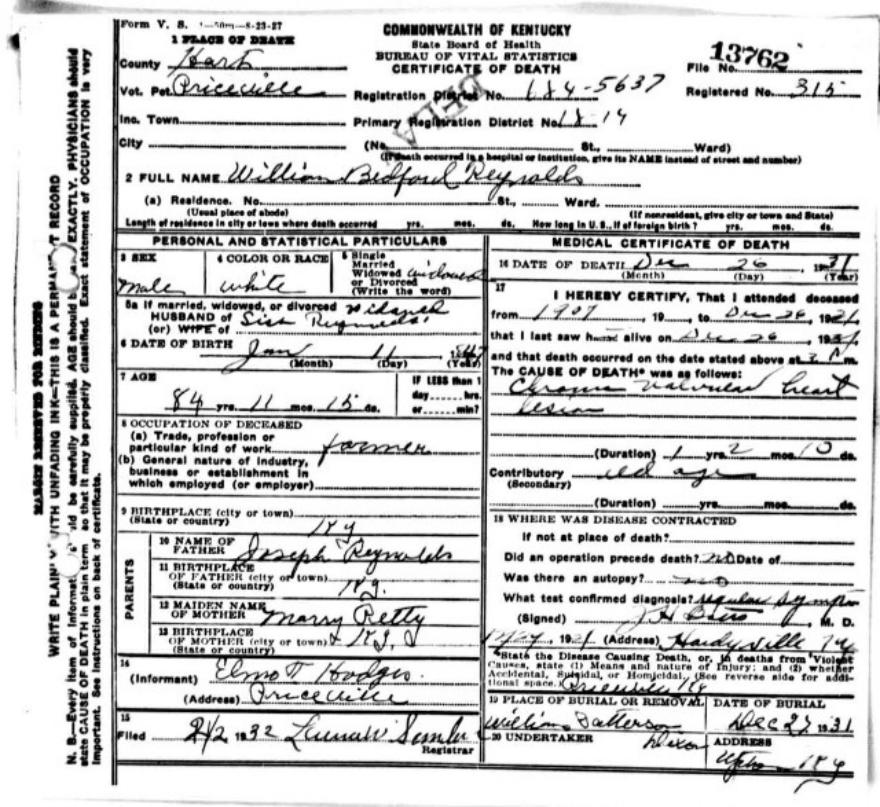 Form V. S. 1-50m-8-23-27
1 PLACE OF DEATH
County Hart
Vot. Pct. Priceville
Inc. Town
City
COMMONWEALTH OF KENTUCKY
State Board of Health
BUREAU OF VITAL STATISTICS
CERTIFICATE OF DEATH
Registration District No. 684-5637
Primary Registration District No. 1814
13762
File No.
Registered No. 315
(No. St., Ward)
(If death occurred in a hospital or institution, give its NAME instead of street and number)
2 FULL NAME William Bedford Reynolds
(a) Residence. No. St., Ward.
(Usual place of abode) (If nonresident, give city or town and State)
Length of residence in city or town where death occurred yrs. mos. ds. How long in U. S., if of foreign birth? yrs. mos. ds.
PERSONAL AND STATISTICAL PARTICULARS
3 SEX
male
4 COLOR OR RACE
white
5 Single
Married
Widowed widowed
or Divorced
(Write the word)
5a If married, widowed, or divorced
HUSBAND of
(or) WIFE of Reynolds
6 DATE OF BIRTH Jan 11
(Month) (Day) (Year)
7 AGE
84 yrs. 11 mos. 15 ds.
IF LESS than 1
day hrs.
or min?
8 OCCUPATION OF DECEASED
(a) Trade, profession or
particular kind of work farmer
(b) General nature of industry,
business or establishment in
which employed (or employer)
9 BIRTHPLACE (city or town)
(State or country) Ky
PARENTS
10 NAME OF
FATHER Joseph Reynolds
11 BIRTHPLACE
OF FATHER (city or town)
(State or country) Ky.
12 MAIDEN NAME
OF MOTHER Marry Retty
13 BIRTHPLACE
OF MOTHER (city or town) Ky.
(State or country)
14
(Informant) Elmo T Hodges
(Address) Priceville
15
Filed 2/2 1932
Registrar
MEDICAL CERTIFICATE OF DEATH
16 DATE OF DEATH Dec 26, 1931
(Month) (Day) (Year)
17
I HEREBY CERTIFY, That I attended deceased
from 1907, 19 , to Dec 26, 1931
that I last saw alive on Dec 26, 1931
and that death occurred on the date stated above at 3 m.
The CAUSE OF DEATH* was as follows:
Chronic valvular heart
lesion
(Duration) 1 yrs. 2 mos. 10 ds.
Contributory old age
(Secondary)
(Duration) yrs. mos. ds.
18 WHERE WAS DISEASE CONTRACTED
If not at place of death?
Did an operation precede death? no Date of
Was there an autopsy? no
What test confirmed diagnosis? regular
(Signed) M. D.
(Address) Hardyville Ky
*State the Disease Causing Death, or, in deaths from Violent
Causes, state (1) Means and nature of Injury; and (2) whether
Accidental, Suicidal, or Homicidal. (See reverse side for addi-
tional space.) Priceville Ky
19 PLACE OF BURIAL OR REMOVAL
William Patterson
DATE OF BURIAL
Dec 27 1931
20 UNDERTAKER Dixon
ADDRESS
Upton Ky
MARGIN RESERVED FOR BINDING
WRITE PLAINLY WITH UNFADING INK—THIS IS A PERMANENT RECORD
N. B.—Every item of information should be carefully supplied. AGE should be stated EXACTLY. PHYSICIANS should
state CAUSE OF DEATH in plain terms so that it may be properly classified. Exact statement of OCCUPATION is very
important. See instructions on back of certificate.